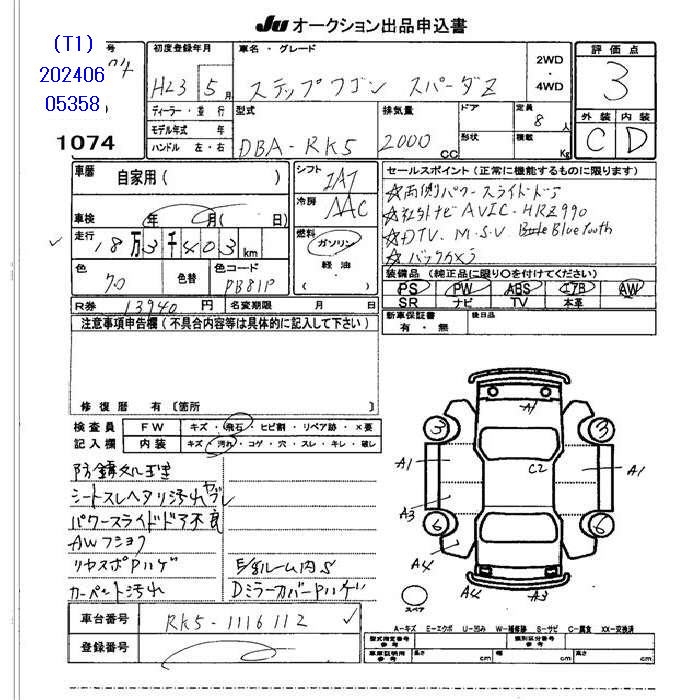 JU オークション出品申込書
(T1)
202406
05358
号
1074
初度登録年月
H23 5月
ディーラー・並行
モデル年式 年
ハンドル 左・右
車名・グレード
ステップワゴン スパーダZ
2WD
・
4WD
型式
DBA-RK5
排気量
2000 CC
ドア
形状
定員
8人
積載
Kg
評価点
3
外装 内装
C D
車歴
自家用( )
車検 年 月( 日)
走行
18万3千403km
色
クロ
色替
色コード
PB81P
シフト
IAT
冷房
AAC
燃料
ガソリン
・
軽油
( )
R券 13940円 名変期限 月 日
セールスポイント(正常に機能するものに限ります)
☆両側パワースライドドア
☆社外ナビ AVIC-HRZ990
☆DTV. M.S.V Bluetooth
☆バックカメラ
装備品(純正品に限り○を付けてください)
PS PW ABS エアB AW
SR ナビ TV 本革
新車保証書
有・無
後日品
注意事項申告欄(不具合内容等は具体的に記入して下さい)
修復歴 有〔箇所 〕
検査員
記入欄
FW キズ・飛石・ヒビ割・リペア跡・×要
内装 キズ・汚れ・コゲ・穴・スレ・キレ・破レ
防錆処理
シートスレヘタリ汚れヤブレ
パワースライドドア不良
AWフショク
リヤスポハゲ
カーペット汚れ
E/gルーム内S
DミラーカバーPハゲ
A1
3 3
A1 C2 A1
A3
6 6
A4
A4 A3
スペア
車台番号 RK5-1116112
登録番号
A-キズ E-エクボ U-凹み W-補修跡 S-サビ C-腐食 XX-交換済
型式指定番号
参考
類別区分番号
参考
車庫証明用
参考
長さ cm 幅 cm 高さ cm